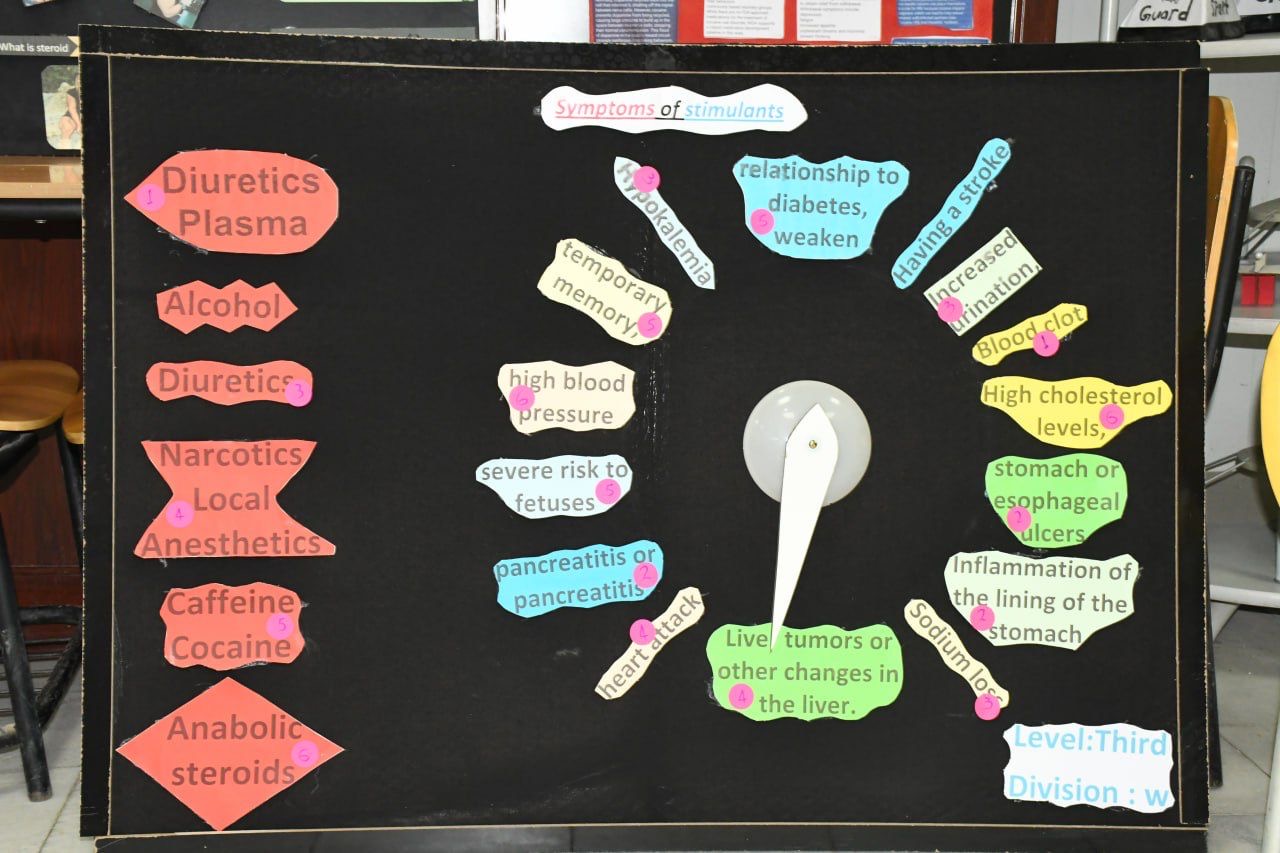 What is steroid
Guard
Symptoms of stimulants
Diuretics
Plasma
1
Alcohol
Diuretics
3
Narcotics
Local
Anesthetics
4
Caffeine
Cocaine
5
Anabolic
steroids
6
Hypokalemia
3
relationship to
diabetes,
weaken
5
Having a stroke
temporary
memory,
5
Increased
urination,
3
Blood clot
1
high blood
pressure
6
High cholesterol
levels,
6
severe risk to
fetuses
5
stomach or
esophageal
ulcers
2
pancreatitis or
pancreatitis
2
Inflammation of
the lining of the
stomach
2
heart attack
4
Live tumors or
other changes in
the liver.
4
Sodium loss
3
Level:Third
Division : w